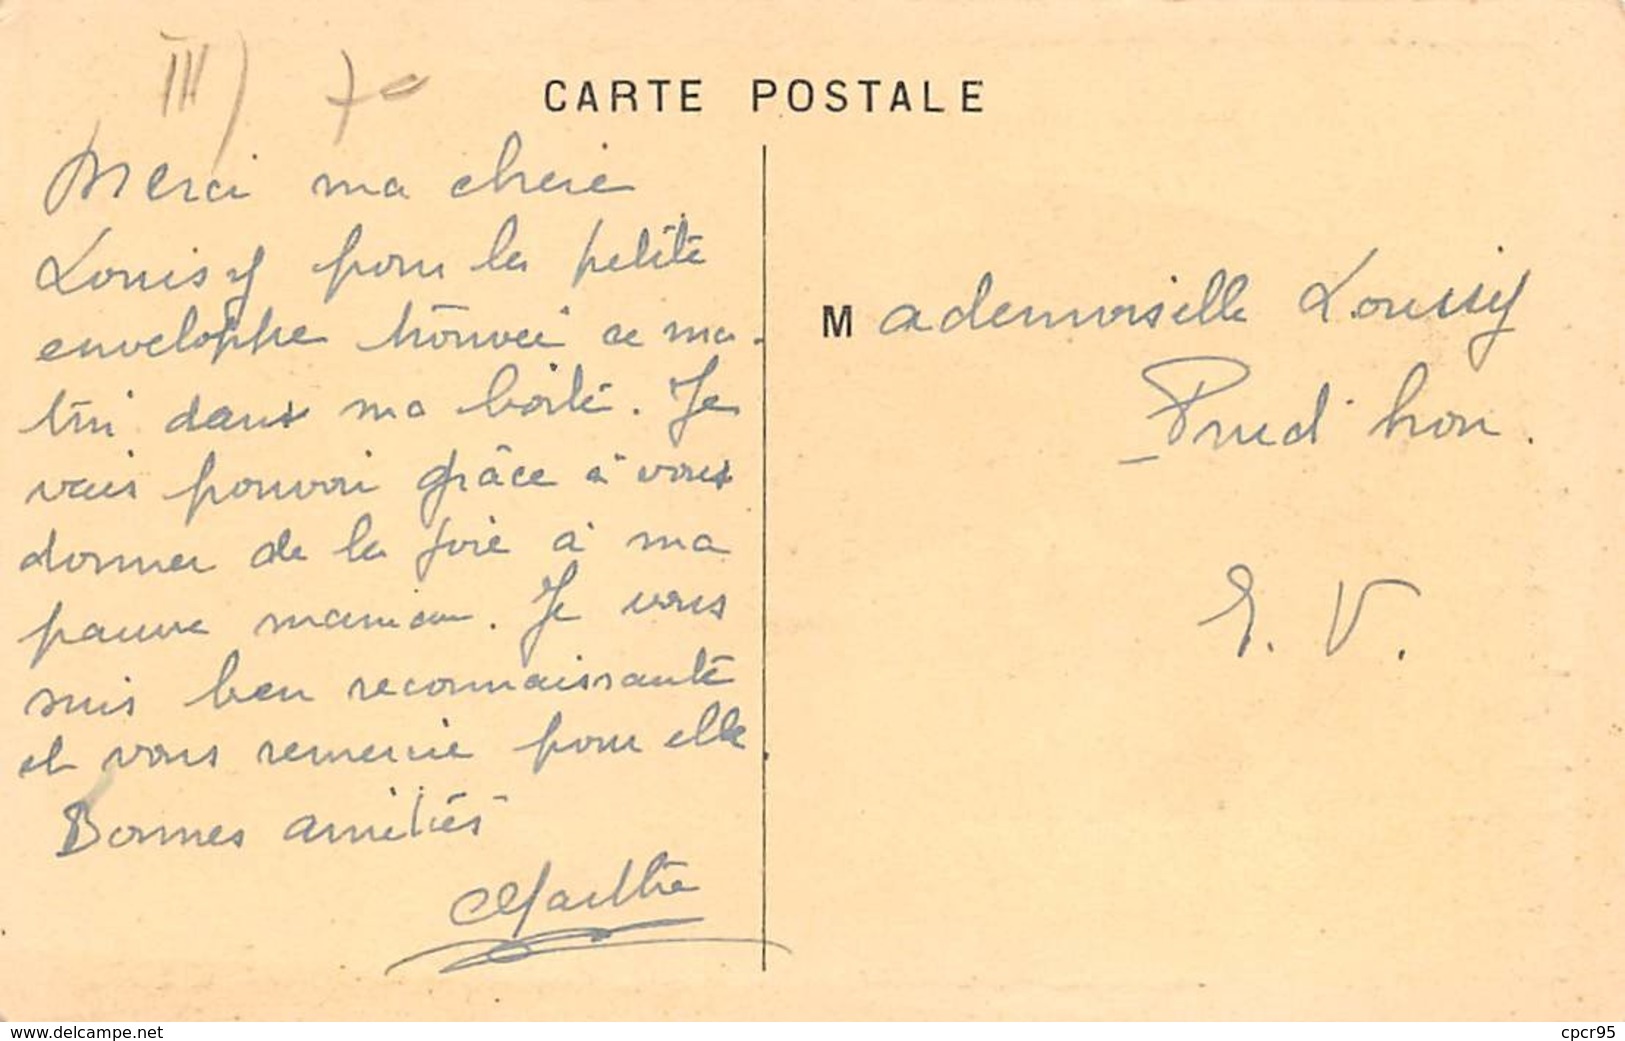 III) 70
CARTE POSTALE
Merci ma cherie
Louisy pour la petite
enveloppe trouvée ce ma-
tin dans ma boîte. Je
vais pouvoir grâce à vous
donner de la joie à ma
pauvre maman. Je vous
suis bien reconnaissante
et vous remercie pour elle.
Bonnes amitiés
Mademoiselle Louisy
Prud'hon.
E. V.
www.delcampe.net
cpcr95